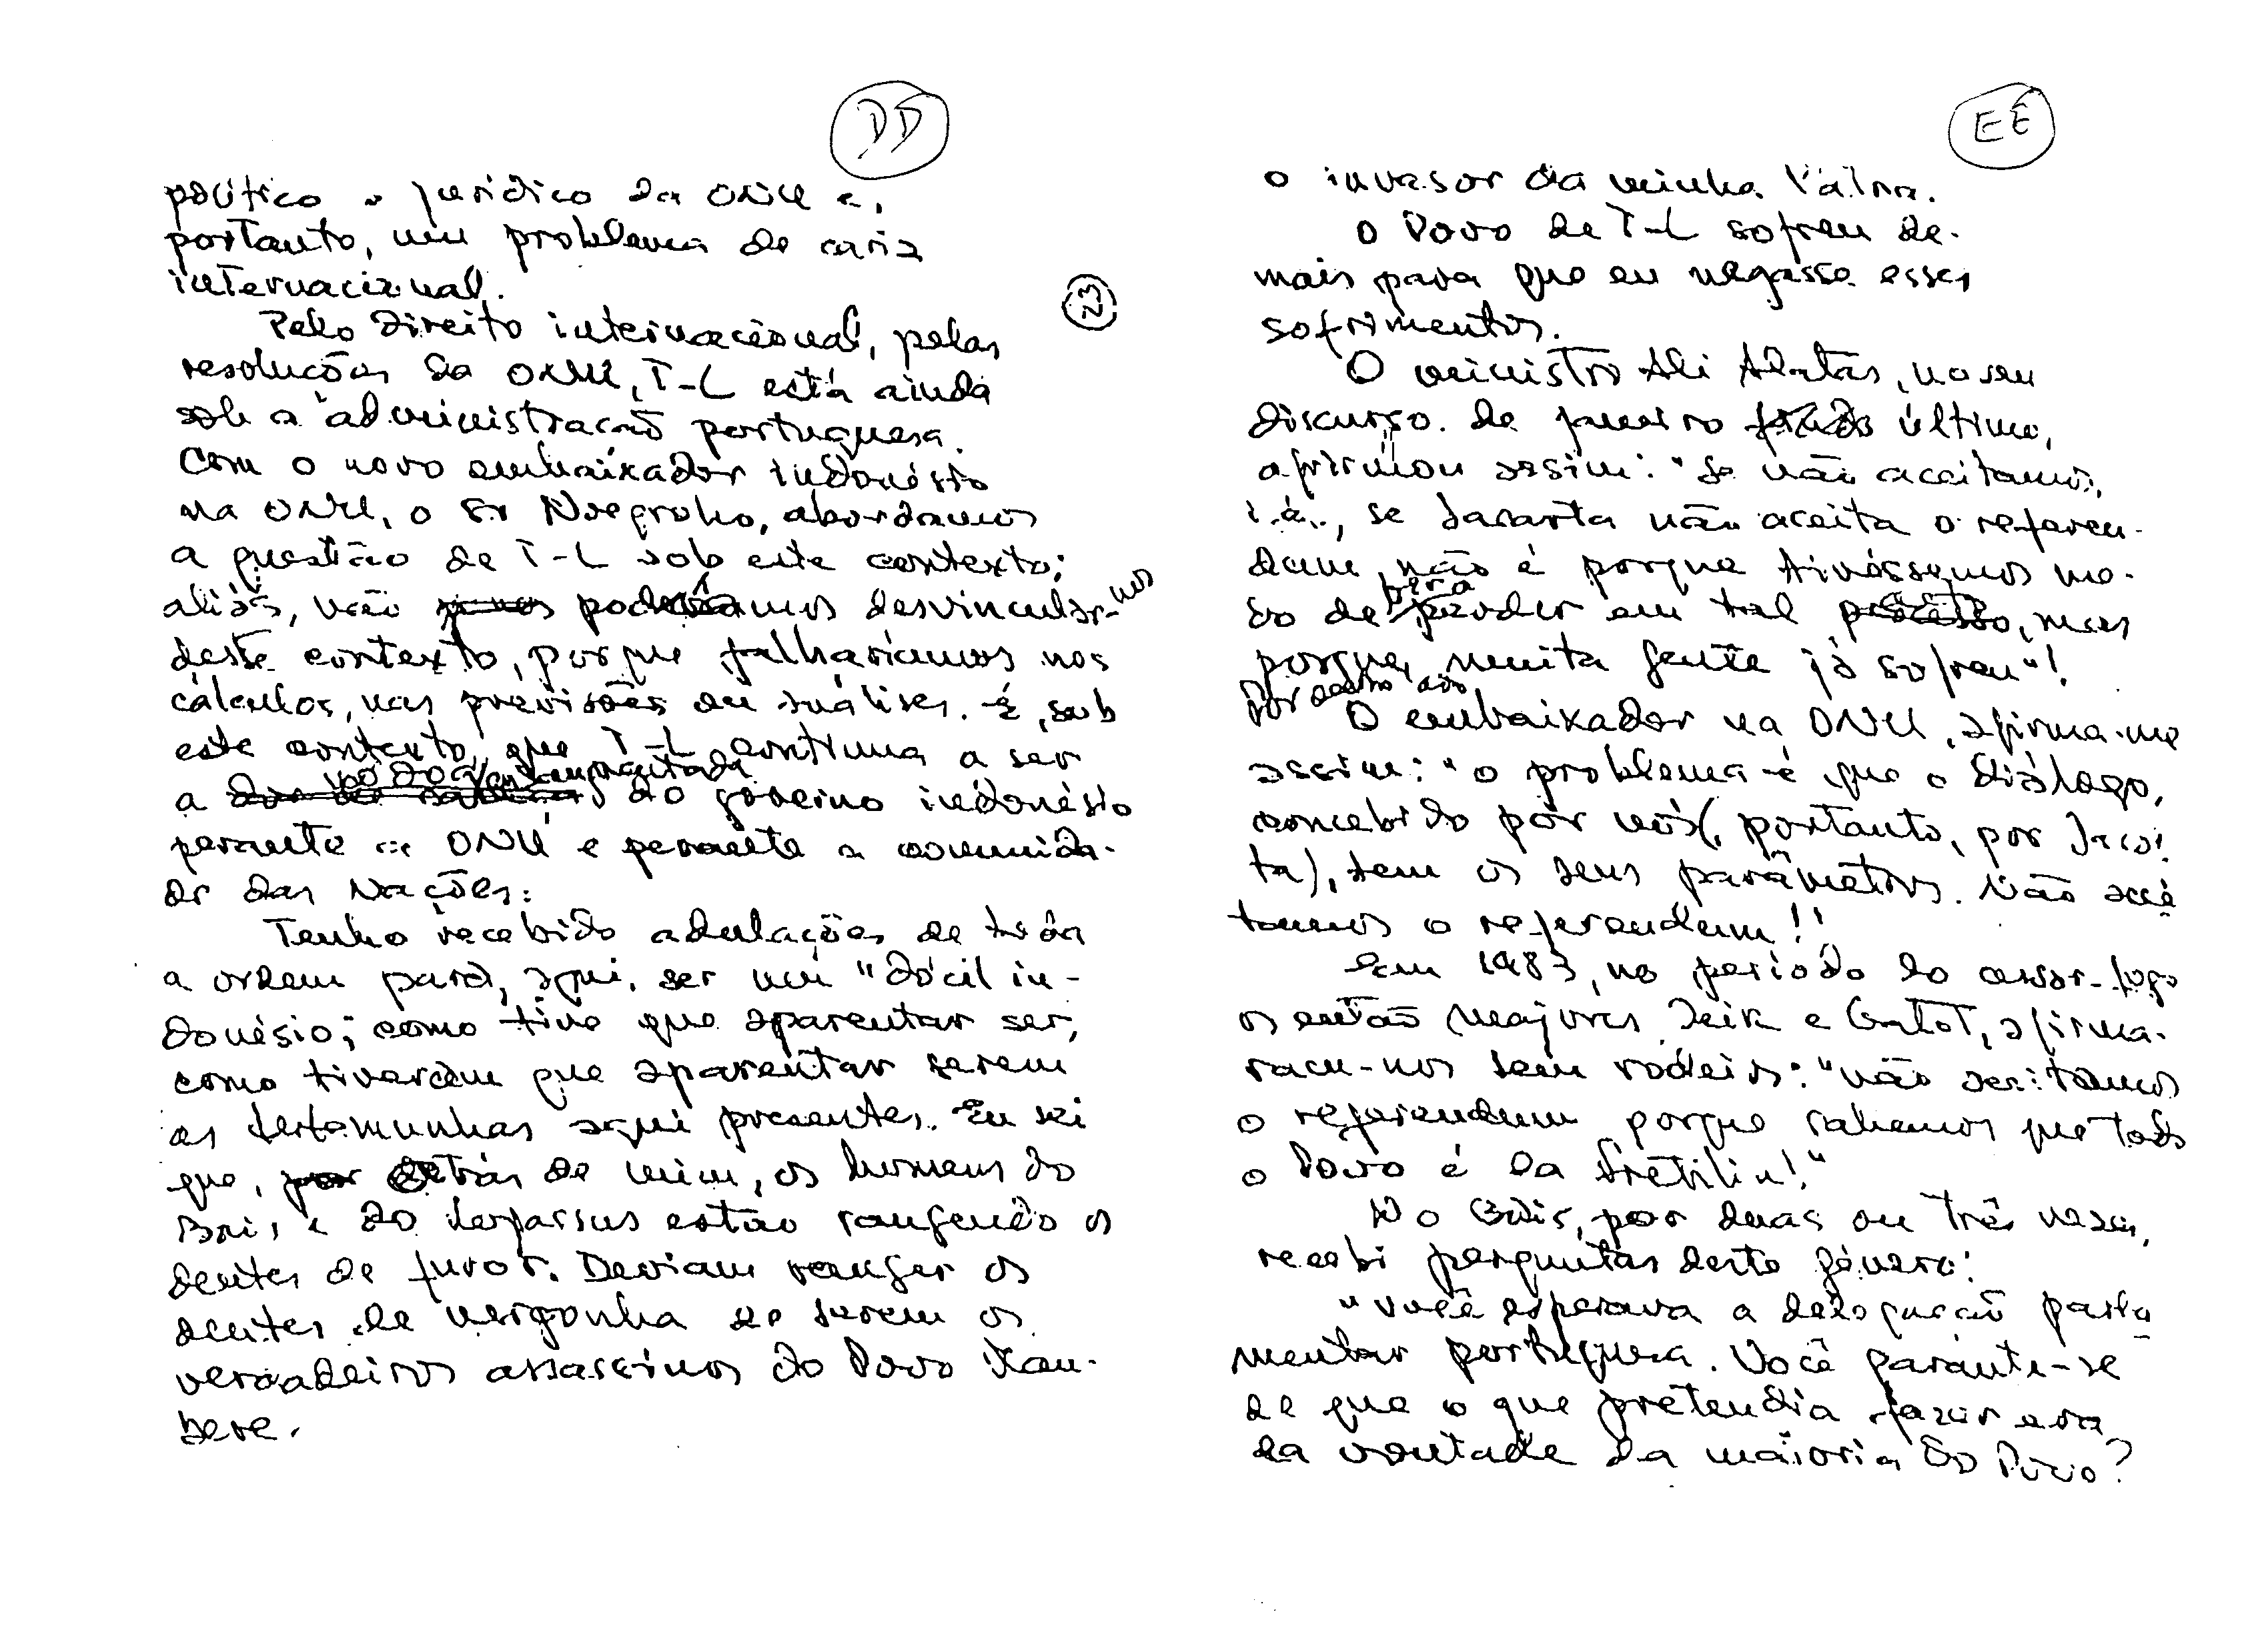 DD
político e jurídico da ONU e,
portanto, um problema de cariz
internacional.
23
Pelo Direito internacional, pelas
resoluções da ONU, T-L está ainda
sob a administração portuguesa.
Com o novo embaixador indonésio
na ONU, o Sr Nugroho, abordamos
a questão de T-L sob este contexto;
aliás, não podíamos desvincular-nos
deste contexto, porque falharíamos nos
cálculos, nas previsões ou análises. É, sob
este contexto, que T-L continua a ser
a do governo indonésio
perante a ONU e perante a comunida-
de das Nações.
Tenho recebido adulações de toda
a ordem para, aqui, ser um "dócil in-
donésio; como tive que aparentar ser,
como tiveram que aparentar serem
as testemunhas aqui presentes. Eu sei
que, detrás de mim, os homens do
Bais e do Kopassus estão rangendo os
dentes de furor. Deviam ranger os
dentes de vergonha de serem os
verdadeiros assassinos do Povo Mau-
bere.
EE
o invasor da minha Pátria.
O Povo de T-L sofreu de-
mais para que eu negasse esses
sofrimentos.
O ministro Ali Alatas, no seu
discurso de janeiro último,
afirmou assim: "Se não aceitamos,
i.é., se Jacarta não aceita o referen-
dum, não é porque tivéssemos me-
do de perder em tal, mas
porque muita gente já sofreu"!
O embaixador na ONU, afirma-me
assim: "o problema é que o diálogo,
concebido por nós (, portanto, por Jacar-
ta), tem os seus parâmetros. Não acei
tamos o referendum!"
Em 1983, no período do cessar-fogo
os então majores Jeik e Gatot, afirma-
ram-nos sem rodeios: "não aceitamos
o referendum porque sabemos que todo
o Povo é da Fretilin!"
No Bais, por duas ou três vezes,
recebi perguntas deste género:
"você esperava a delegação parla
mentar portuguesa. Você garante-se
de que o que pretendia fazer era
da vontade da maioria do Povo?